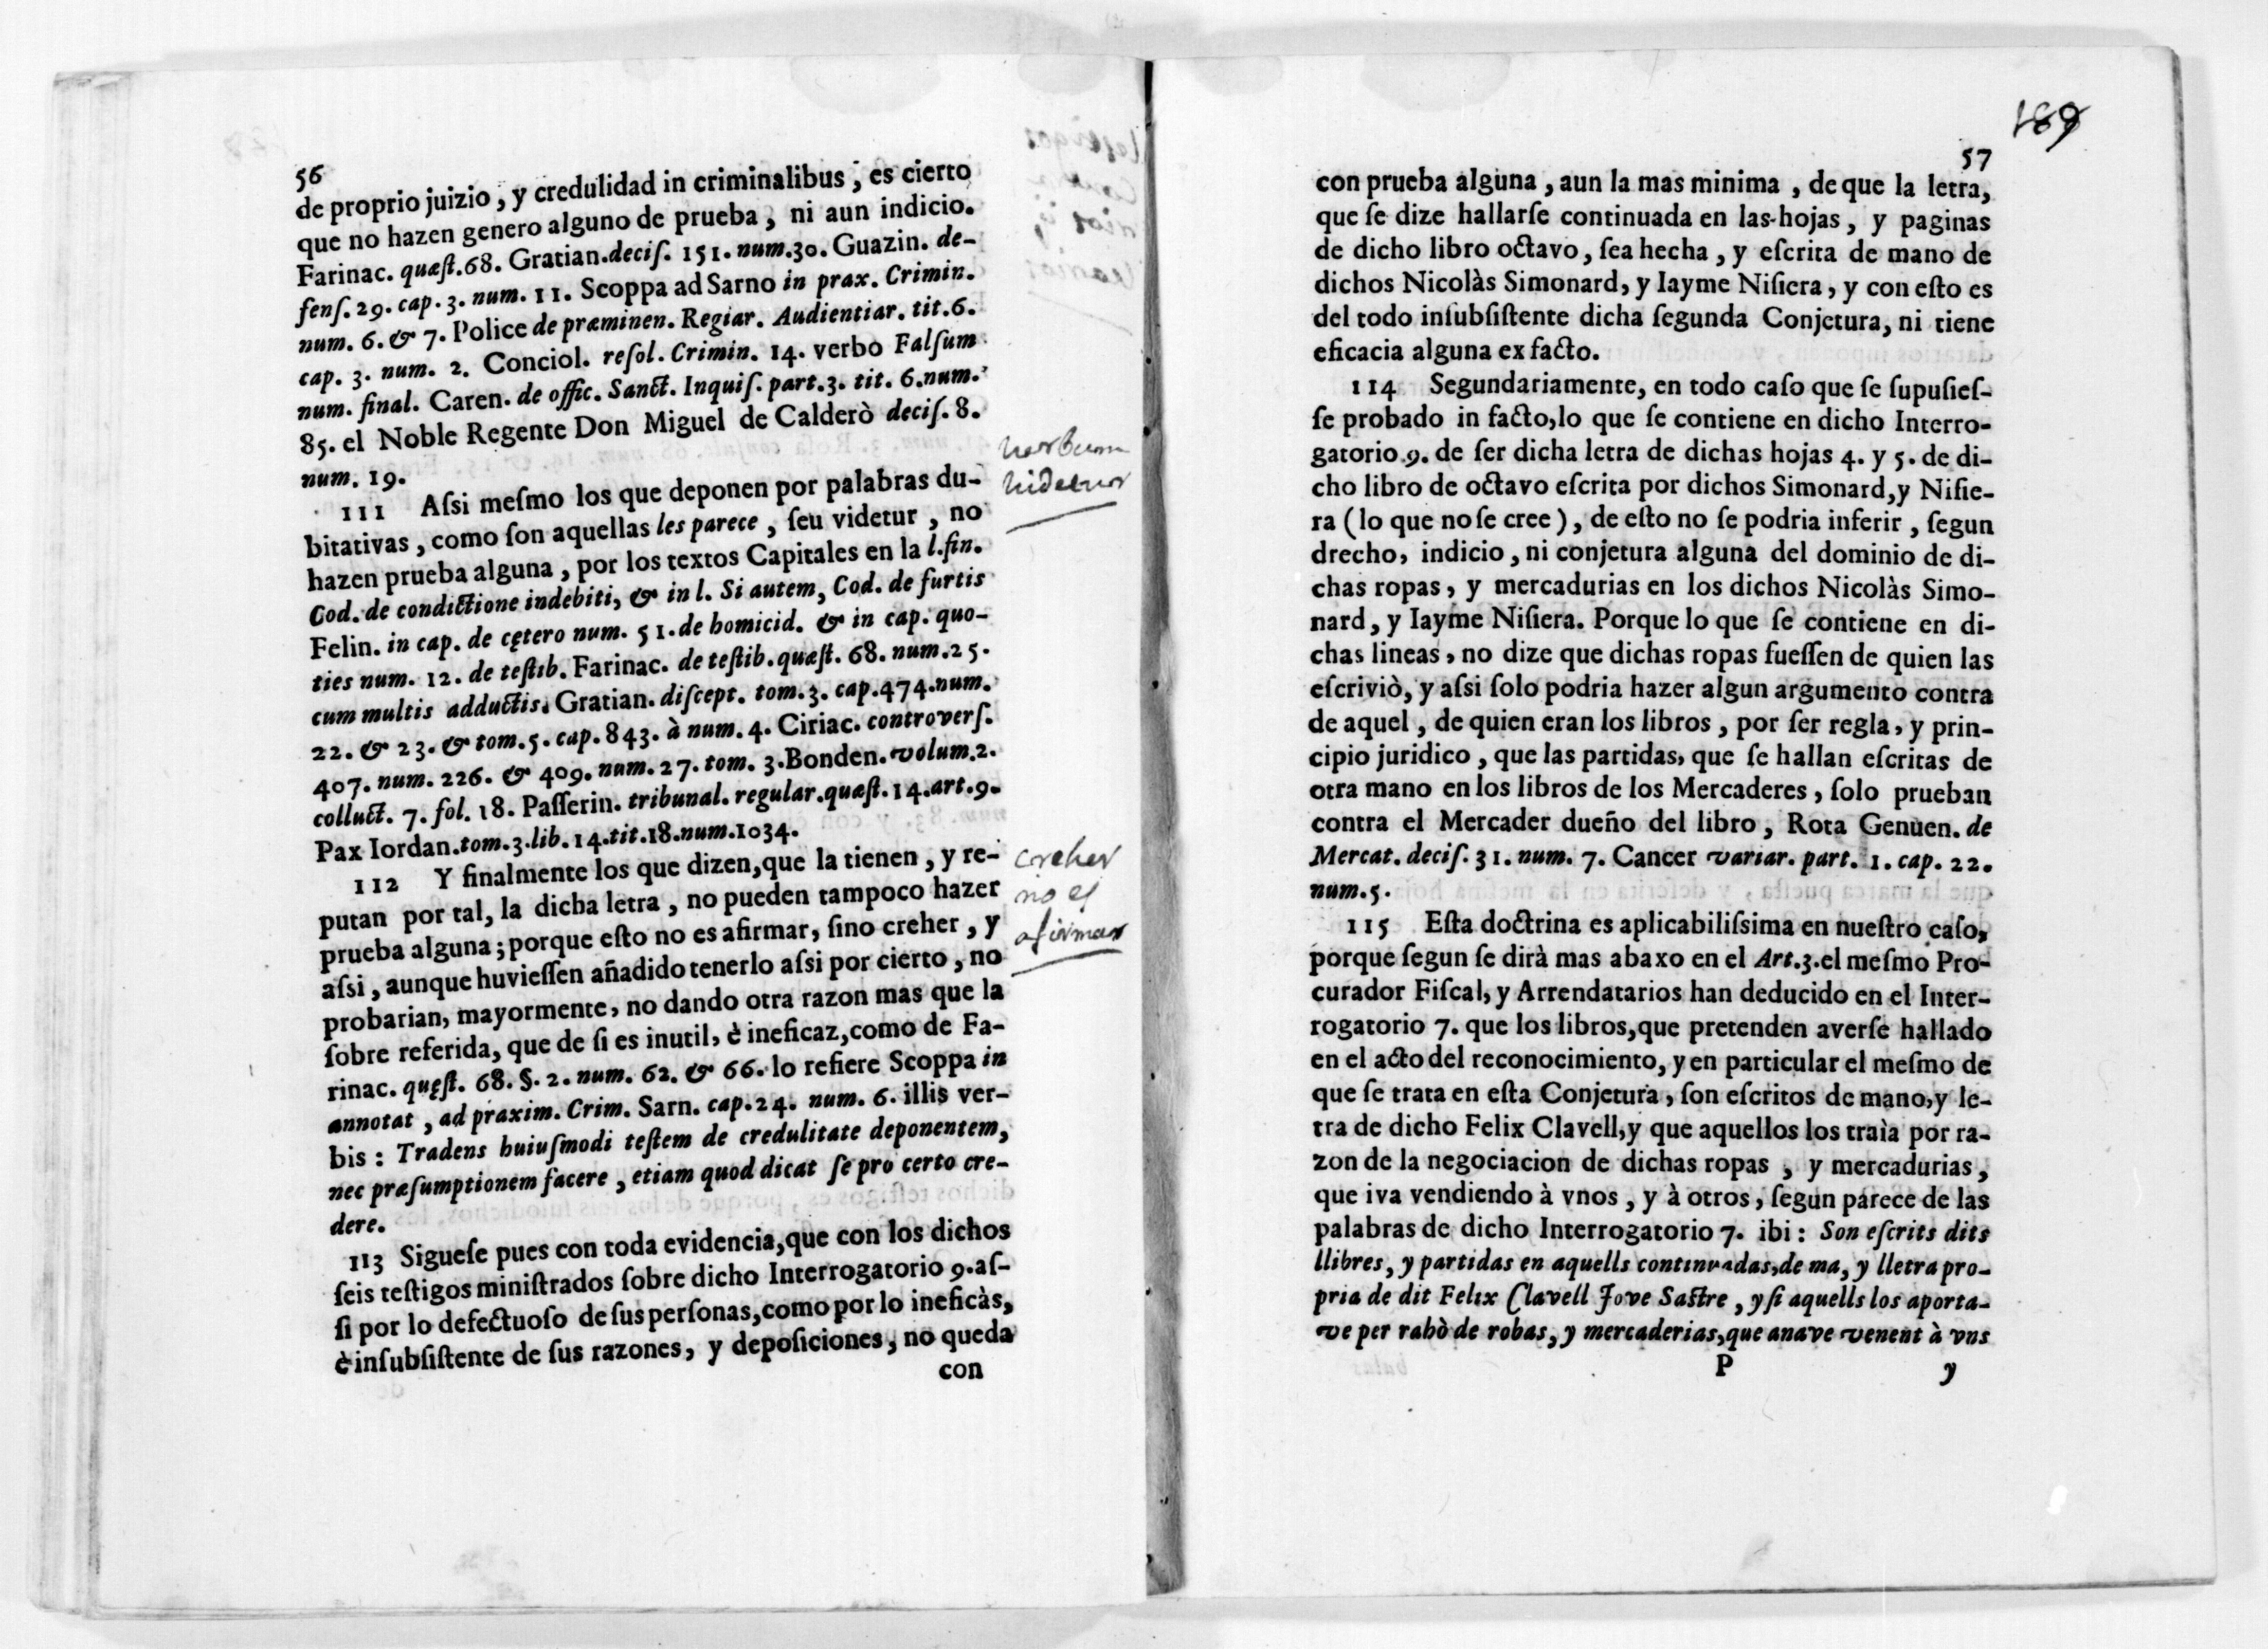 56
de proprio juizio, y credulidad in criminalibus, es cierto
que no hazen genero alguno de prueba, ni aun indicio.
Farinac. quæſt.68. Gratian.deciſ. 151. num.30. Guazin. de-
fenſ. 29. cap. 3. num. 11. Scoppa ad Sarno in prax. Crimin.
num. 6. & 7. Police de præminen. Regiar. Audientiar. tit.6.
cap. 3. num. 2. Conciol. reſol. Crimin. 14. verbo Falſum
num. final. Caren. de offic. Sanct. Inquiſ. part.3. tit. 6.num.
85. el Noble Regente Don Miguel de Calderò deciſ. 8.
num. 19.
111 Aſsi meſmo los que deponen por palabras du-
bitativas, como ſon aquellas les parece, ſeu videtur, no
hazen prueba alguna, por los textos Capitales en la l.fin.
Cod. de condictione indebiti, & in l. Si autem, Cod. de furtis
Felin. in cap. de cętero num. 51. de homicid. & in cap. quo-
ties num. 12. de teſtib. Farinac. de teſtib. quæſt. 68. num.25.
cum multis adductis. Gratian. diſcept. tom.3. cap.474.num.
22. & 23. & tom.5. cap.843. à num.4. Ciriac. controverſ.
407. num. 226. & 409. num.27. tom. 3.Bonden. volum.2.
colluct. 7. fol. 18. Paſſerin. tribunal. regular.quæſt.14.art.9.
Pax Iordan.tom.3.lib.14.tit.18.num.1034.
112 Y finalmente los que dizen,que la tienen, y re-
putan por tal, la dicha letra, no pueden tampoco hazer
prueba alguna; porque eſto no es afirmar, ſino creher, y
aſsi, aunque huvieſſen añadido tenerlo aſsi por cierto, no
probarian, mayormente, no dando otra razon mas que la
ſobre referida, que de ſi es inutil, è ineficaz,como de Fa-
rinac. quęſt. 68. §. 2. num. 62. & 66. lo refiere Scoppa in
annotat, ad praxim. Crim. Sarn. cap.24. num. 6. illis ver-
bis: Tradens huiuſmodi teſtem de credulitate deponentem,
nec præſumptionem facere, etiam quod dicat ſe pro certo cre-
dere.
113 Sigueſe pues con toda evidencia,que con los dichos
ſeis teſtigos miniſtrados ſobre dicho Interrogatorio 9.aſ-
ſi por lo defectuoſo de ſus perſonas,como por lo ineficàs,
è inſubſiſtente de ſus razones, y depoſiciones, no queda
con
verbum
videtur
creher
no es
afirmar
189
57
con prueba alguna, aun la mas minima, de que la letra,
que ſe dize hallarſe continuada en las hojas, y paginas
de dicho libro octavo, ſea hecha, y eſcrita de mano de
dichos Nicolàs Simonard, y Iayme Niſiera, y con eſto es
del todo inſubſiſtente dicha ſegunda Conjetura, ni tiene
eficacia alguna ex facto.
114 Segundariamente, en todo caſo que ſe supuſieſ-
ſe probado in facto,lo que ſe contiene en dicho Interro-
gatorio 9. de ſer dicha letra de dichas hojas 4. y 5. de di-
cho libro de octavo eſcrita por dichos Simonard,y Niſie-
ra (lo que no ſe cree), de eſto no ſe podria inferir, ſegun
drecho, indicio, ni conjetura alguna del dominio de di-
chas ropas, y mercadurias en los dichos Nicolàs Simo-
nard, y Iayme Niſiera. Porque lo que ſe contiene en di-
chas lineas, no dize que dichas ropas fueſſen de quien las
eſcriviò, y aſsi ſolo podria hazer algun argumento contra
de aquel, de quien eran los libros, por ſer regla, y prin-
cipio juridico, que las partidas, que ſe hallan eſcritas de
otra mano en los libros de los Mercaderes, ſolo prueban
contra el Mercader dueño del libro, Rota Genuen. de
Mercat. deciſ. 31. num. 7. Cancer variar. part. 1. cap. 22.
num.5.
115 Eſta doctrina es aplicabiliſsima en nueſtro caſo,
porque ſegun ſe dirà mas abaxo en el Art.3.el meſmo Pro-
curador Fiſcal, y Arrendatarios han deducido en el Inter-
rogatorio 7. que los libros,que pretenden averſe hallado
en el acto del reconocimiento, y en particular el meſmo de
que ſe trata en eſta Conjetura, ſon eſcritos de mano,y le-
tra de dicho Felix Clavell,y que aquellos los traìa por ra-
zon de la negociacion de dichas ropas, y mercadurias,
que iva vendiendo à vnos, y à otros, ſegun parece de las
palabras de dicho Interrogatorio 7. ibi: Son eſcrits dits
llibres, y partidas en aquells continuadas,de ma, y lletra pro-
pria de dit Felix Clavell Jove Saſtre, y ſi aquells los aporta-
ve per rahò de robas, y mercaderias,que anave venent à vns
P
y